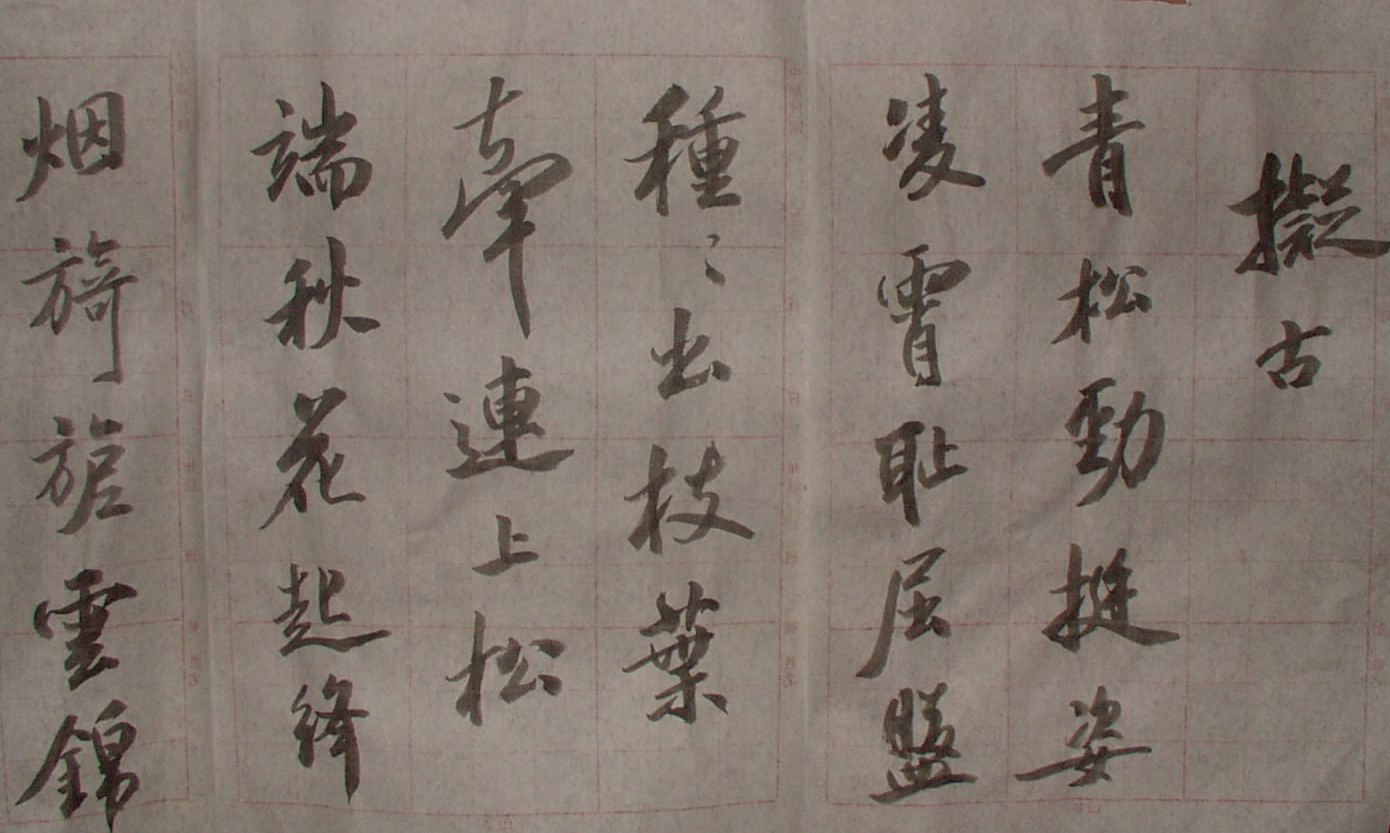 擬古
青松勁挺姿
凌霄耻屈盤
種〻出枝葉
牽連上松
端秋花起絳
烟旖旎雲錦